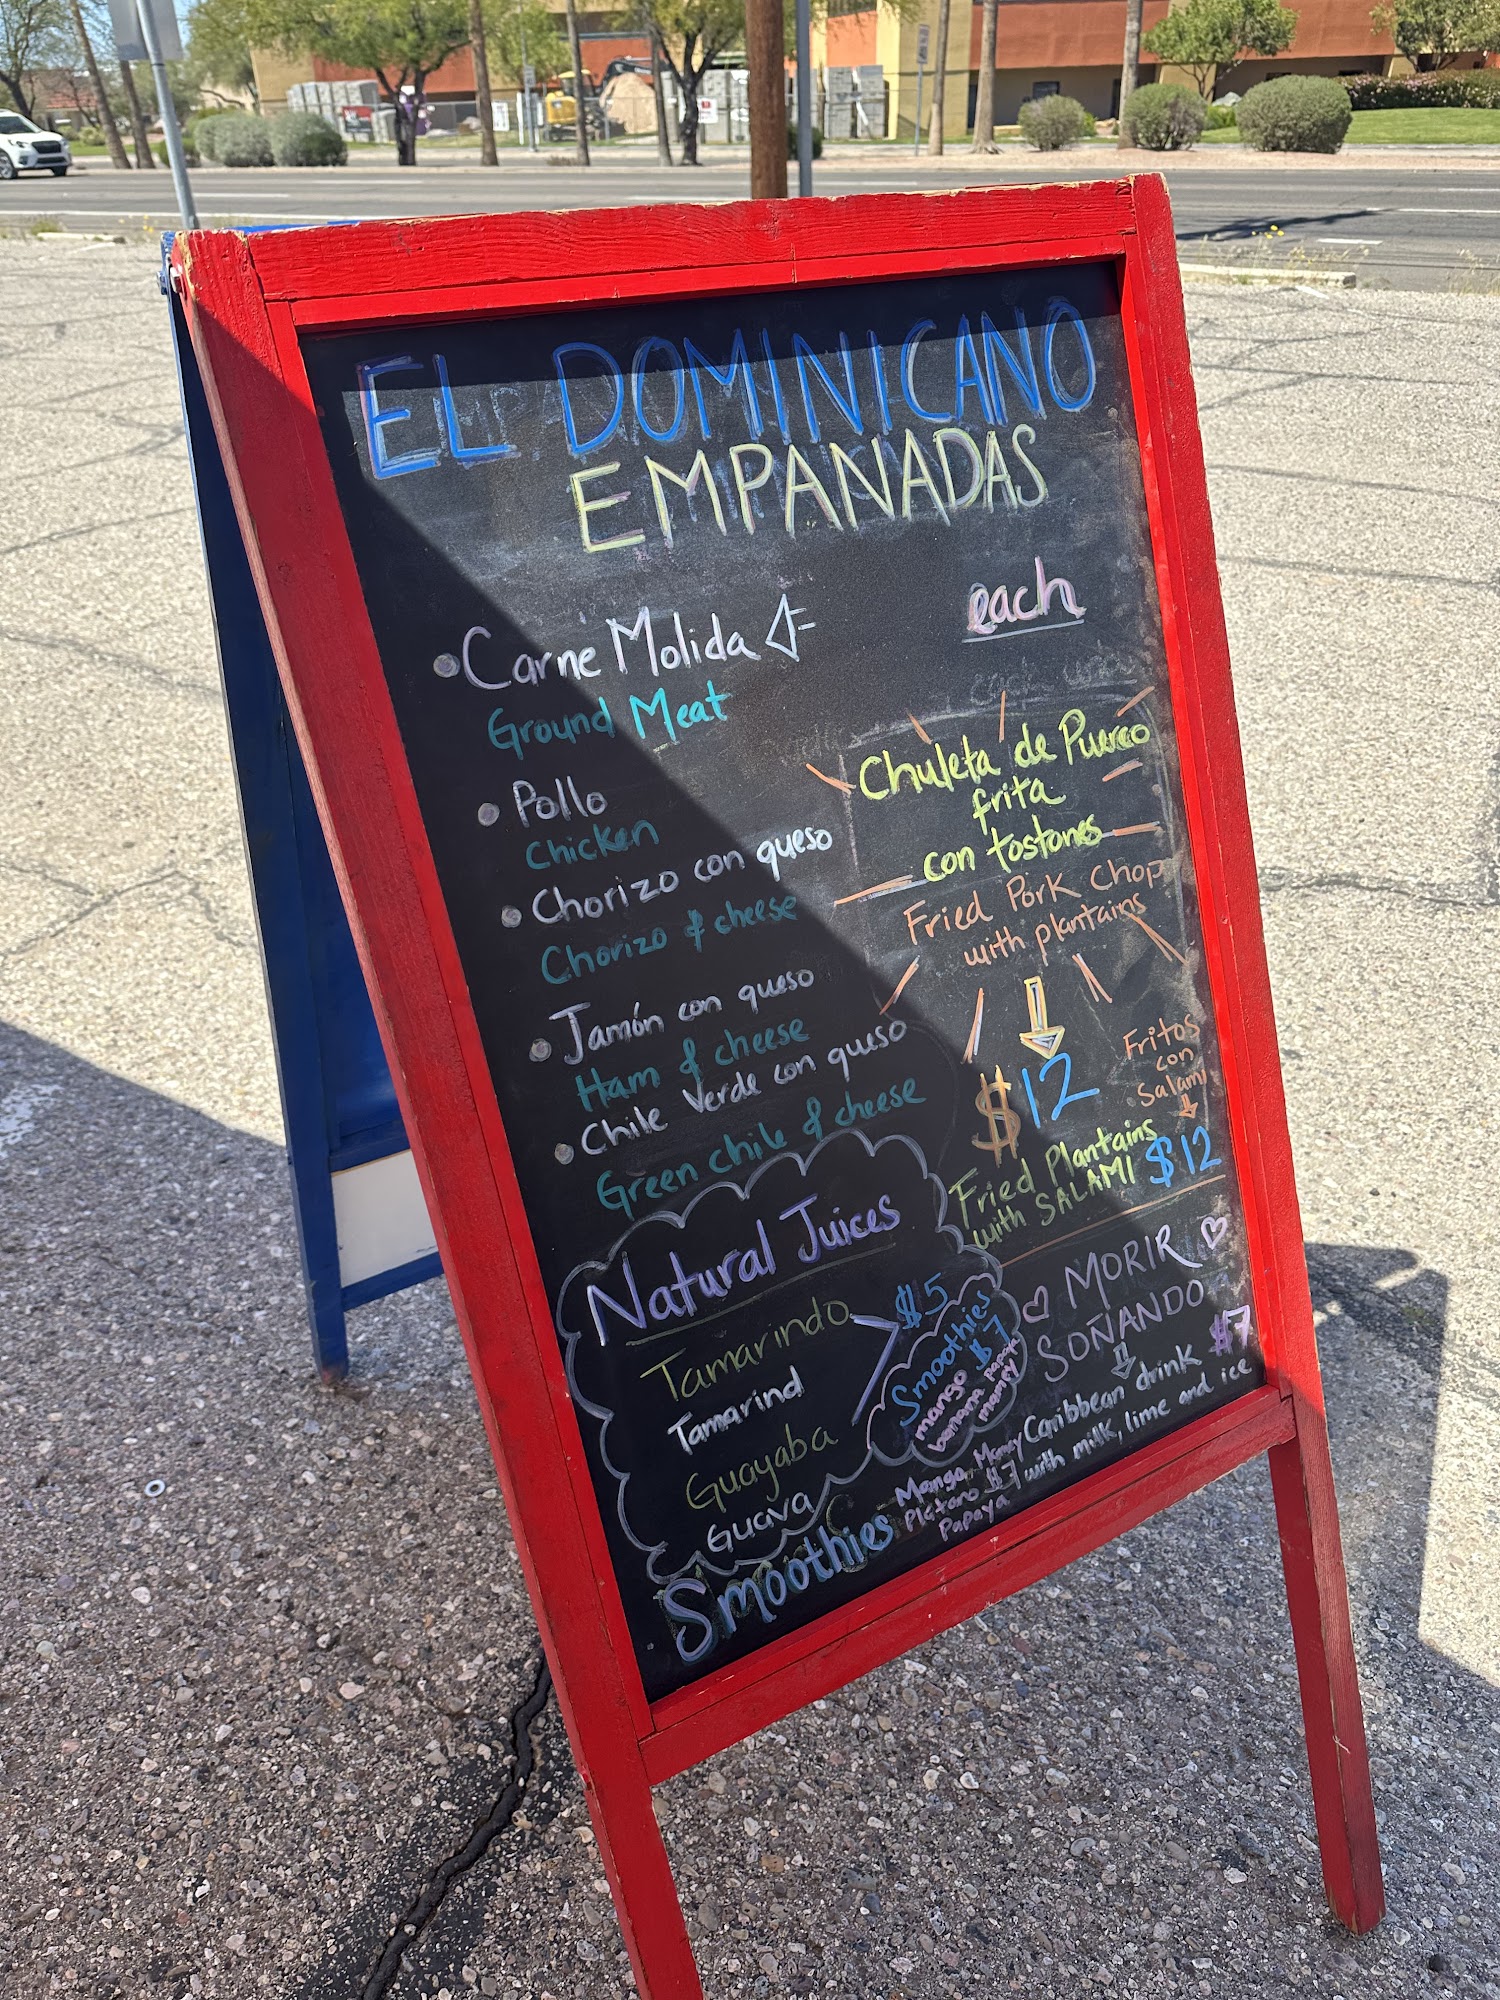 EL DOMINICANO
EMPANADAS
each
• Carne Molida
Ground Meat
• Pollo
Chicken
• Chorizo con queso
Chorizo & cheese
• Jamón con queso
Ham & cheese
• Chile Verde con queso
Green chile & cheese
Chuleta de Puerco
frita
con tostones
Fried Pork Chop
with plantains
$12
Fritos
con
Salami
Fried Plantains
with SALAMI $12
Natural Juices
Tamarindo $5
Tamarind
Guayaba
Guava
Smoothies
$7
mango
banana papaya
mamey
MORIR
SOÑANDO
$7
Caribbean drink
with milk, lime and ice
Smoothies
Mango, Mamey
Platano $7
Papaya